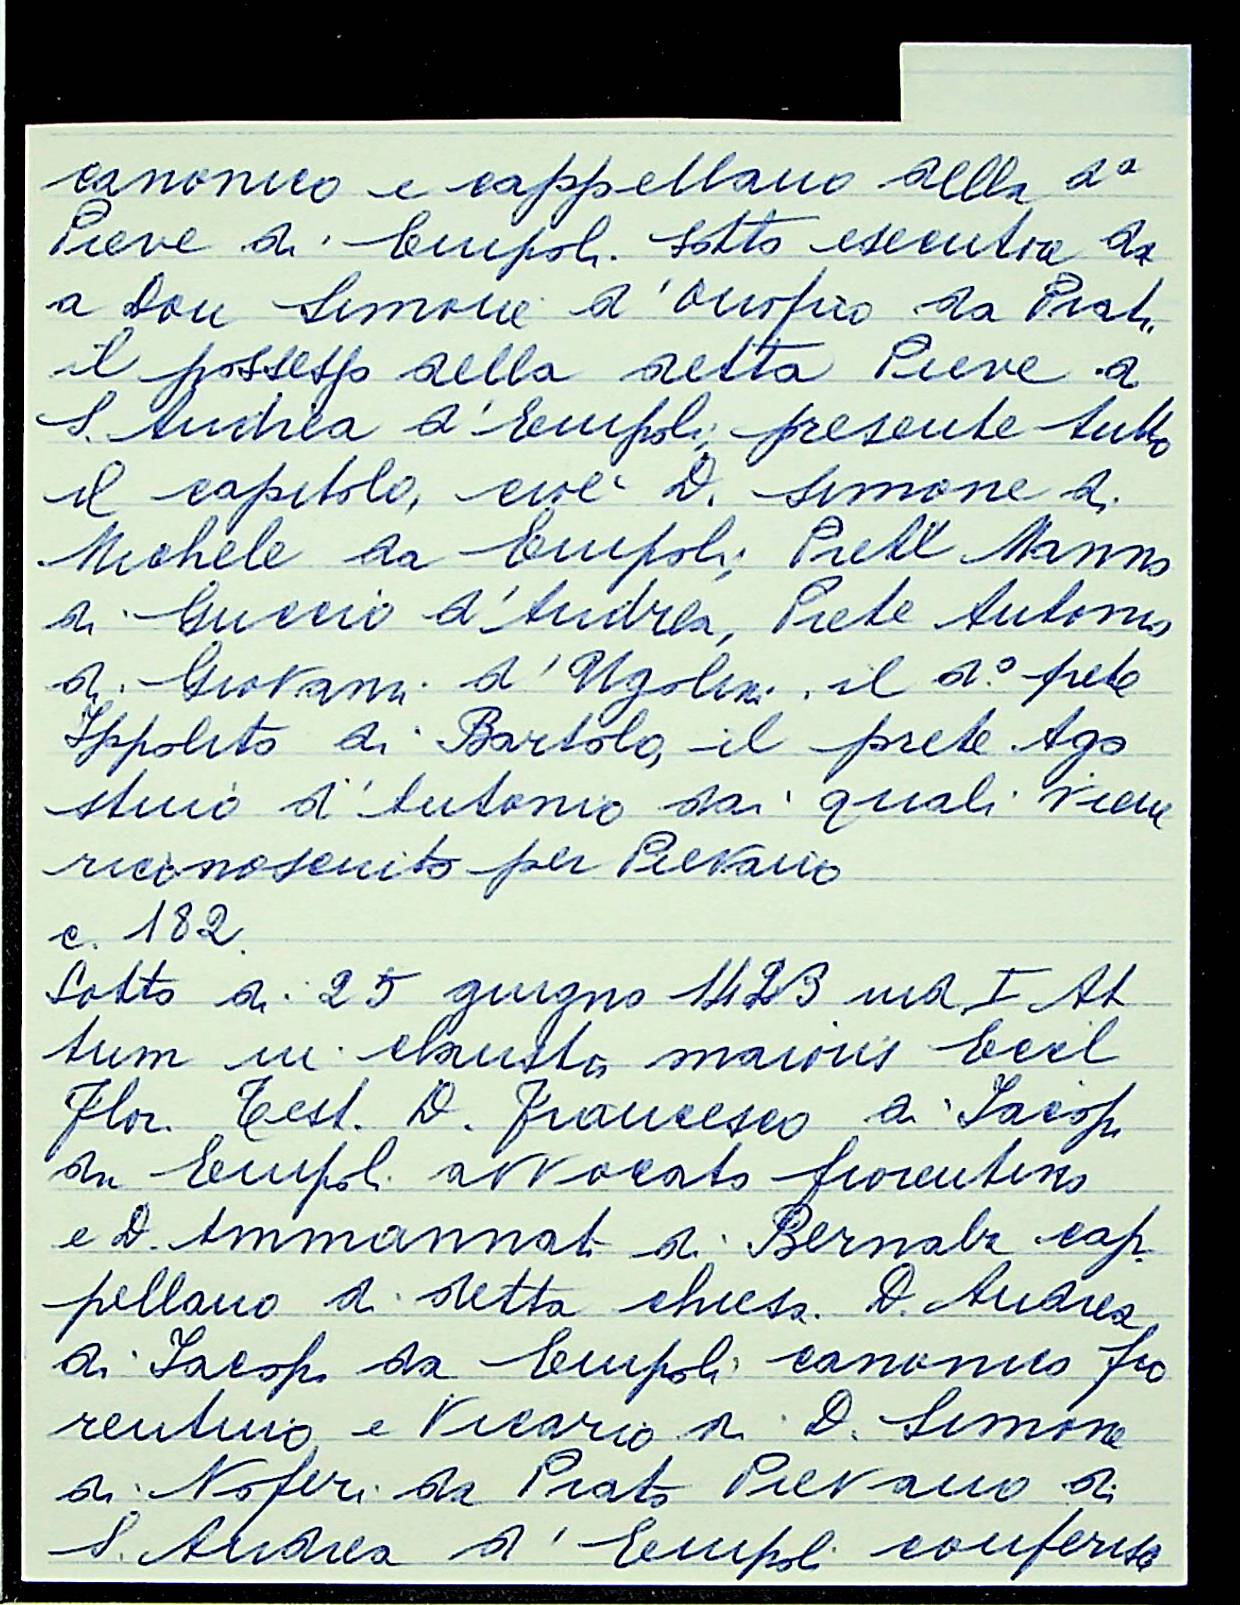 canonico e cappellano della d.a
Pieve di Empoli. sotto esecutra da
a Don Simone d'Onofrio da Prato
il possesso della detta Pieve di
S. Andrea d'Empoli, presente tutto
il capitolo, cioè D. Simone di
Michele da Empoli, Prete Nanno
di Guccio d'Andrea, Prete Antonio
di Giovanni d'Ugolini, il d.o prete
Ippolito di Bartolo, il prete Ago
stino d'Antonio dai quali viene
riconosciuto per Pievano
c. 182.
Sotto di 25 giugno 1423 ind. I At
tum in claustro maioris Eccl
Flor. Test. D. Francesco di Iacopo
da Empoli avvocato fiorentino
e D. Ammannati di Bernaba cap
pellano di detta chiesa. D. Andrea
di Iacopo da Empoli canonico fio
rentino e Vicario di D. Simone
di Noferi da Prato Pievano di
S. Andrea d'Empoli conferisce